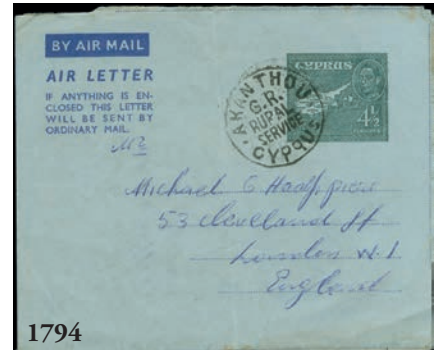 BY AIR MAIL
AIR LETTER
IF ANYTHING IS EN-
CLOSED THIS LETTER
WILL BE SENT BY
ORDINARY MAIL.
CYPRUS
4½
AKANTHOU
G.R.
RURAL
SERVICE
CYPRUS
Michael G
53 Cleveland St
London W.1
England
1794